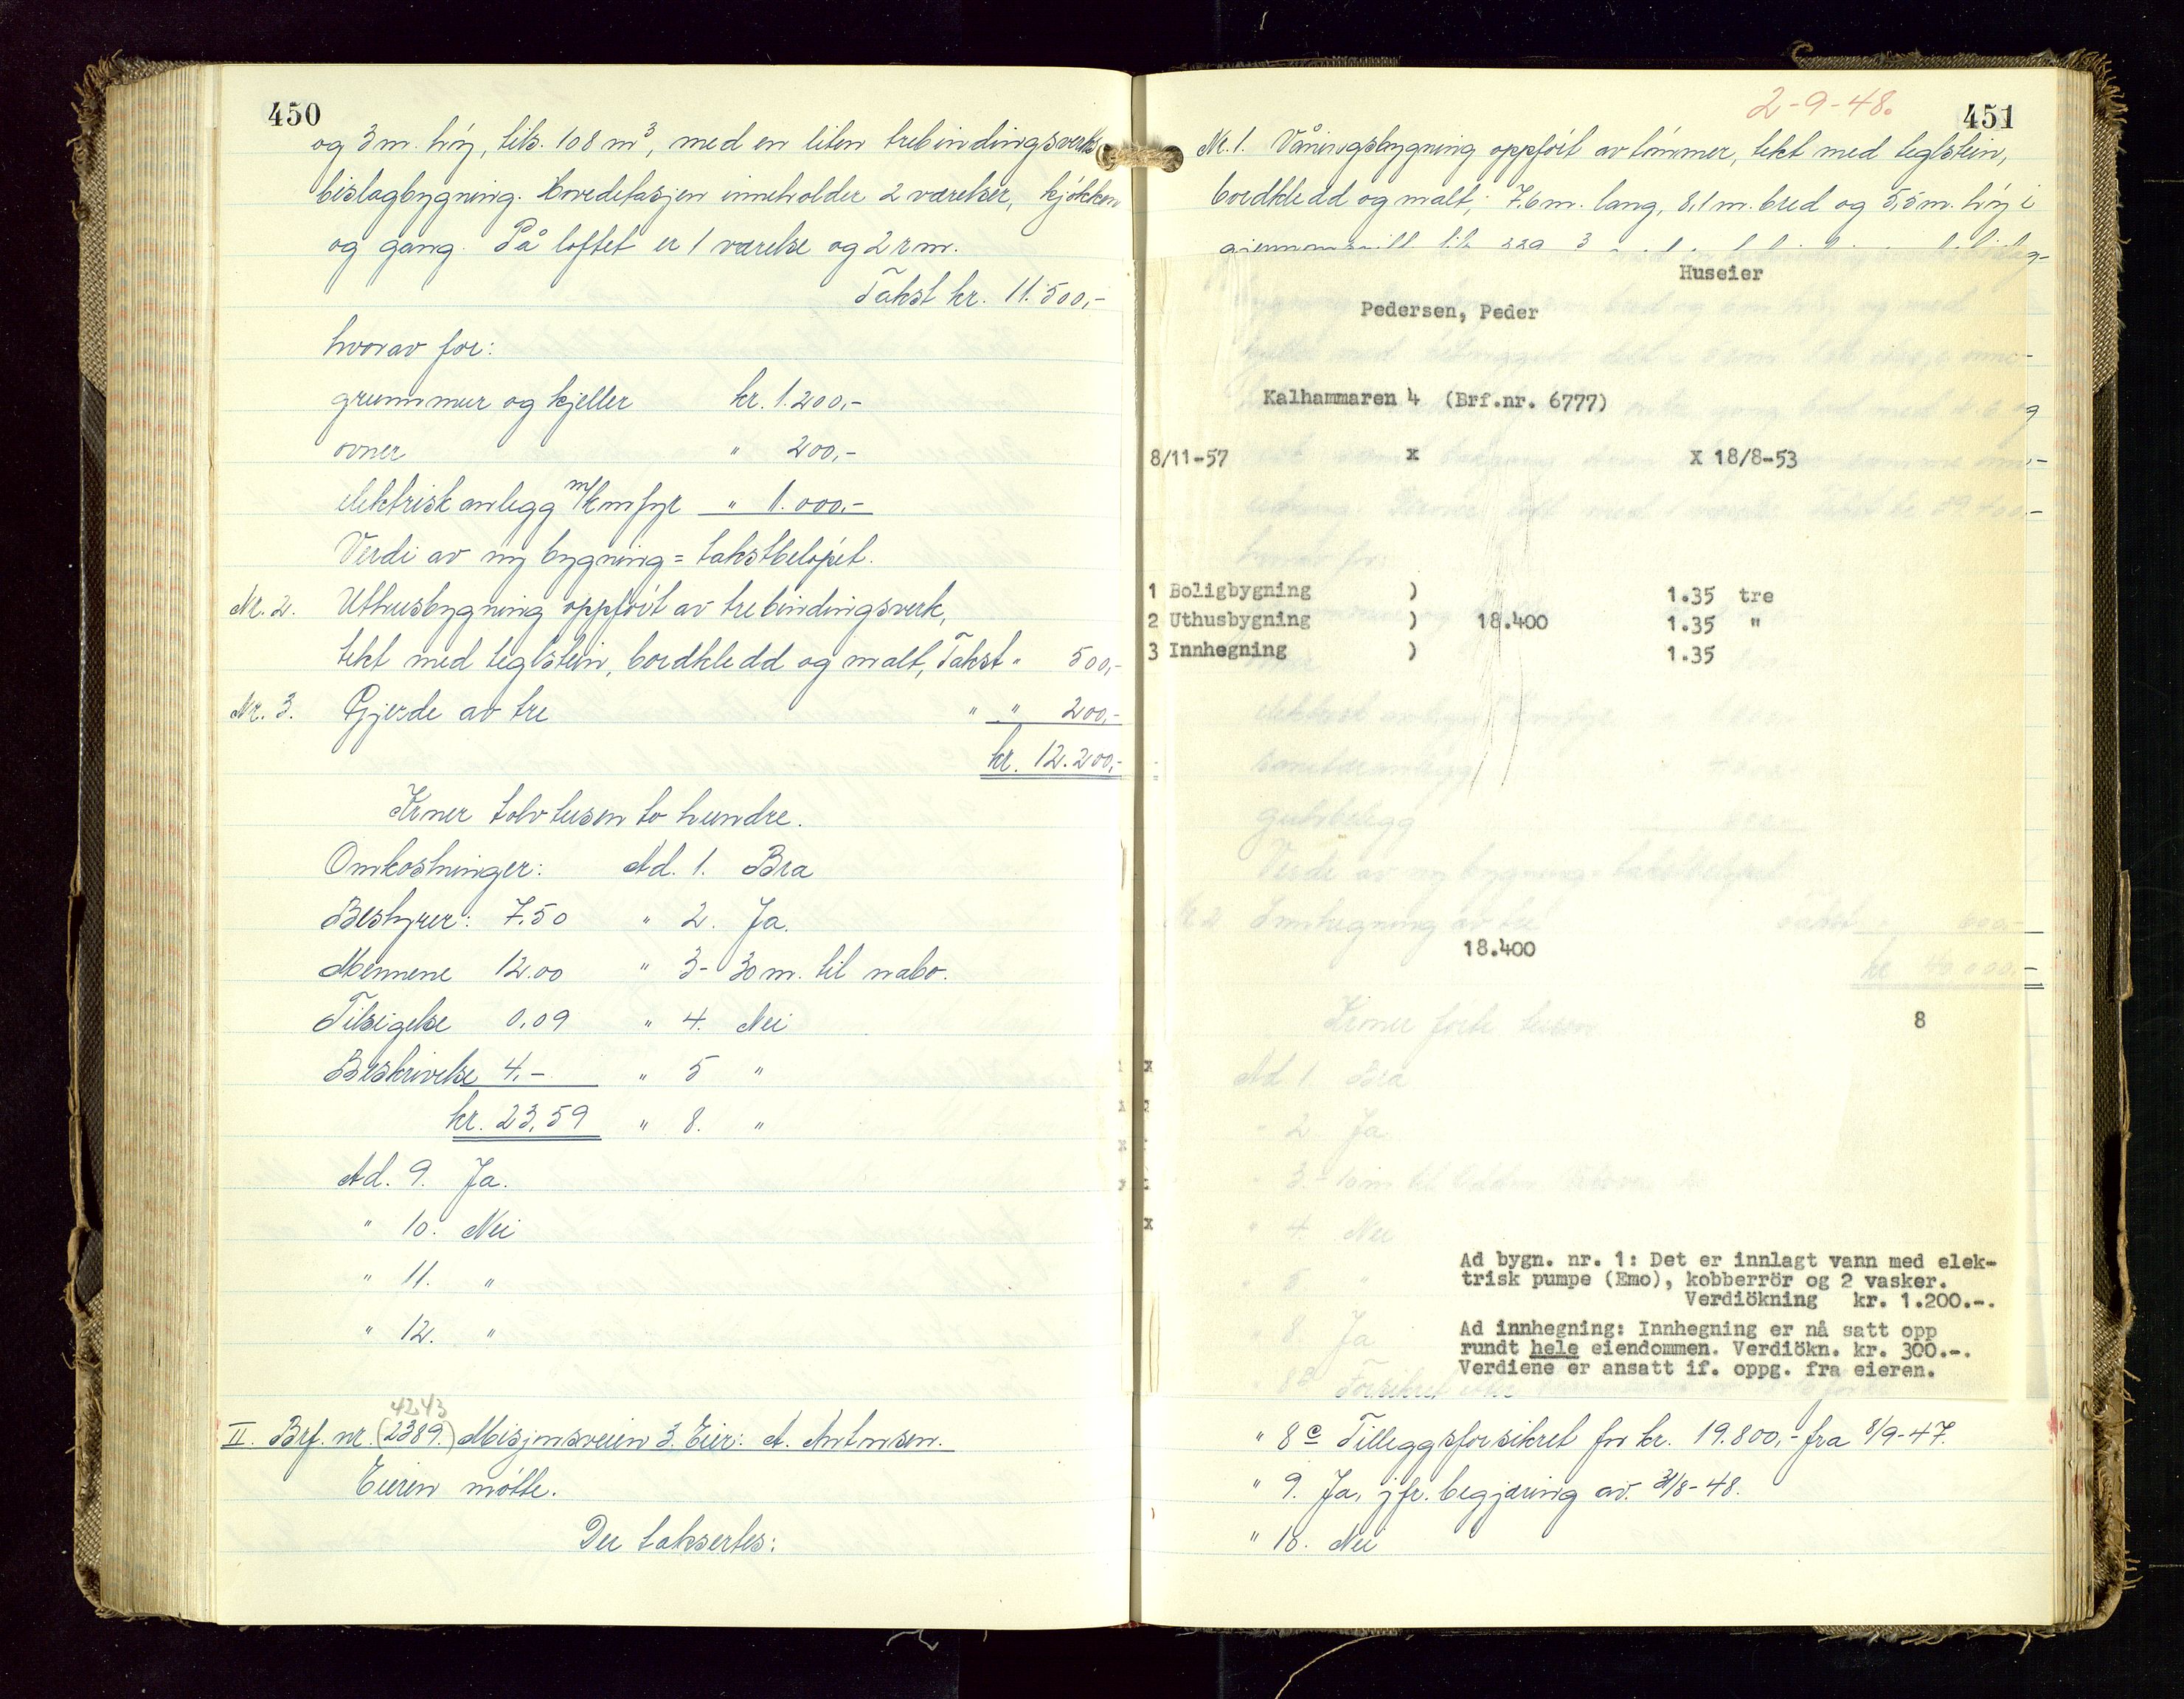 450
og 3 m. høy, tils. 108 m³, med en liten trebindingsverks
bislagbygning. Hovedetasjen inneholder 2 værelser, kjøkken
og gang. På loftet er 1 værelse og 2 rm.
Takst kr. 11.500,-
hvorav for:
grunnmur og kjeller kr. 1.200,-
ovner " 200,-
elektrisk anlegg m/komfyr " 1.000,-
Verdi av ny bygning = takstbeløpet.
Nr. 2. Uthusbygning oppført av trebindingsverk,
tekt med teglstein, bordkledd og malt, Takst " 500,-
Nr. 3. Gjerde av tre " " 200,-
kr. 12.200,-
Kroner tolv tusen to hundre.
Omkostninger: Ad. 1. Bra
Bestyrer: 7.50 " 2. Ja.
Mennene 12.00 " 3- 30 m. til nabo.
Tilsigelse 0.09 " 4. Nei
Beskrivelse 4.- " 5 "
kr. 23,59 " 8. "
Ad. 9. Ja.
" 10. Nei
" 11. "
" 12. "
4243
II. Brf. nr. (2389.) Misjonsveien 3. Eier: A. Antonsen.
Eieren møtte.
Der taksertes:
2-9-48.
451
Nr. 1. Våningsbygning oppført av tømmer, tekt med teglstein,
bordkledd og malt; 7.6 m. lang, 8,1 m. bred og 5,5 m. høy i
Huseier
Pedersen, Peder
Kalhammaren 4 (Brf.nr. 6777)
8/11-57 x X 18/8-53
1 Boligbygning ) 1.35 tre
2 Uthusbygning ) 18.400 1.35 "
3 Innhegning ) 1.35
elektrisk anlegg m/komfyr
gulvbelegg
Verdi av ny bygning = takstbeløpet
Nr. 2 Innhegning av tre Takst " 600,-
18.400
kr. 40.000,-
Kroner førti tusen
8
Ad 1. Bra
" 2 Ja
" 4. Nei
" 5 "
Ad bygn. nr. 1: Det er innlagt vann med elek-
trisk pumpe (Emo), kobberrör og 2 vasker.
Verdiökning kr. 1.200.-.
" 8. Ja
Ad innhegning: Innhegning er nå satt opp
rundt hele eiendommen. Verdiökn. kr. 300.-.
Verdiene er ansatt if. oppg. fra eieren.
" 8c Tilleggsforsikret for kr. 19.800,- fra 8/9-47.
" 9. Ja, jfr. begjæring av 31/8-48.
" 10. Nei